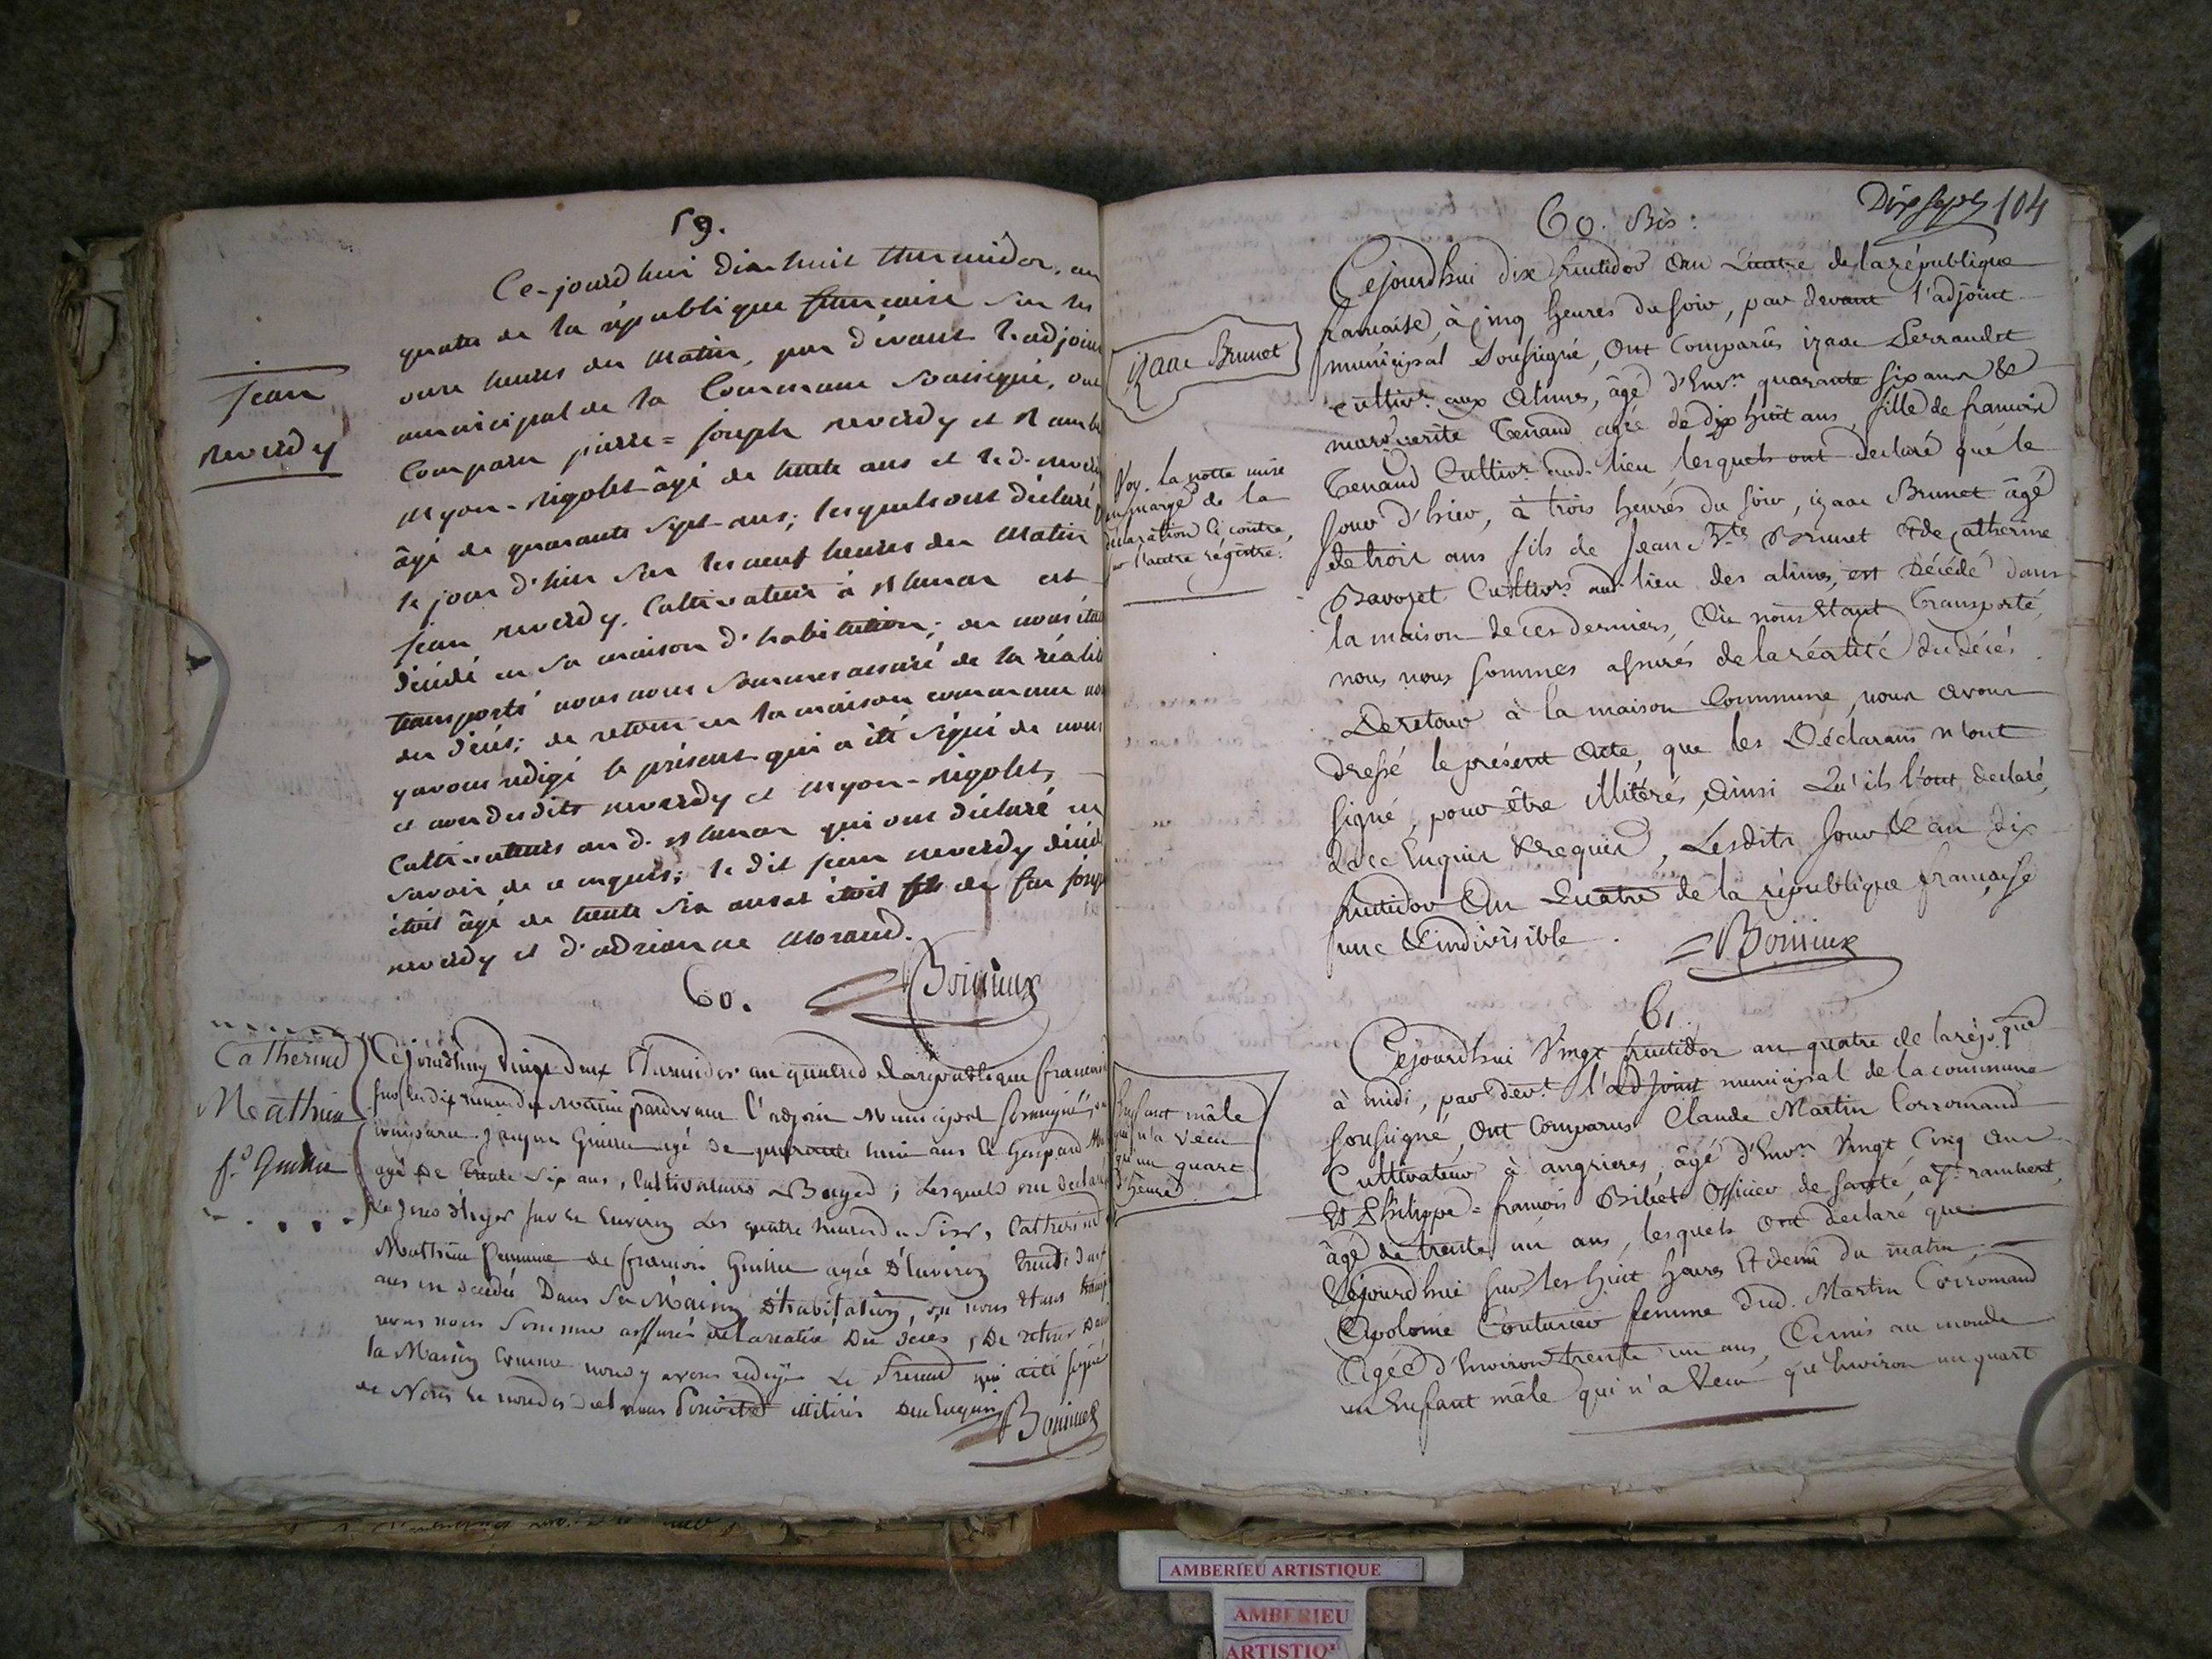 59.
Jean
reverdy
Ce-jourd'hui dix huit thermidor, an
quatre de la république francaise sur les
onze heures du matin, par devant l'adjoint
municipal de la Commune soussigné, ont
Comparu pierre = joseph reverdy et
myon-rigolet âgé de trente ans et le d. reverdy
âgé de quarante sept ans; lesquels ont déclaré
le jour d'hier sur les neuf heures du matin
jean reverdy. Cultivateur à est
décédé en sa maison d'habitation; ou nous étant
transporté nous nous sommes assuré de la réalité
du décès; de retour en la maison commune nous
y avons redigé le présent qui a été signé de nous
et non desdits reverdy et myon-rigolet,
Cultivateurs au d. qui ont déclaré ne
savoir de ce enquis; le dit jean reverdy décédé
étoit âgé de trente six ans et étoit fils de feu joseph
reverdy et d'adrianne morand.
Boinieux
60.
Catherine
Mathieu
f.e Guillie
Cejourdhuy vingt deux Thermidor an quatre de la republique francaise
sur les dix heures du matin pardevant l'adjoin municipal soussigné, ont
comparu jacques Guillie agé de quarante huit ans & Gaspard
agé de trente six ans, Cultivateurs ; lesquels ont declaré
le jour d'hyer sur les environ les quatre heures du soir, Catherine
Mathieu femme de francois Guillie agée d'environ trente
ans est decedée Dans sa Maison d'habitation, ou nous etant transp
nous nous sommes assurés de la realité du décès, De retour dans
la Maison Comune nous y avons redigé le present qui a été signé
de Nous et non des illitérés de ce enquis
Boinieux
Dix sept 104
60. Bis:
izaac Brunet
Voy. la notte mise
en marge de la
déclaration ci contre,
sur l'autre régistre.
Cejourdhui dix fructidor an Quatre de la république
francaise, à cinq heures du soir, par devant l'adjoint
municipal Soussigné, Ont Comparûs izaac Perraudet
cultiv.r aux Alimes, âgé d'Env.n quarante six ans &
marguerite Tenand agée de dix huit ans, fille de francois
Tenand Cultiv.r aud. lieu, lesquels ont declaré que le
jour d'hier, à trois heures du soir, izaac Brunet âgé
de trois ans fils de Jean B.te Brunet & de catherine
Bavozet Cultiv.rs aud. lieu des alimes, est décédé dans
la maison de ces derniers, Où nous Etant Transporté,
nous nous sommes assurés de la réalité du décès.
De retour à la maison Commune, nous avons
dressé le présent Acte, que les Déclarans n'ont
signé, pour être illitérés, Ainsi Qu'ils l'ont declaré,
de ce Enquis & requis, Lesdits jour & an dix
fructidor An Quatre de la république française
une & indivisible.
Boinieux
61.
Enfant mâle
qui n'a vécu
qu'un quart
d'heure
Cejourdhui Vingt fructidor an quatre de la rép.que
à midi, par dev.t l'adjoint municipal de la commune
soussigné, Ont Comparus Claude Martin Corromand
Cultivateur à angrieres, âgé d'Env.n Vingt Cinq ans
Et Philippe = francois Billiet Officier de santé, à S.t rambert,
âgé de trente un ans, lesquels Ont declaré que
Cejourdhui sur les huit heures Et demi du matin,
Apolonie Couturier femme dud. Martin Corromand
Agée d'Environ trente un ans, A mis au monde
un Enfant mâle qui n'a Vécu qu'Environ un quart
AMBERIEU ARTISTIQUE
AMBERIEU
ARTISTIQ